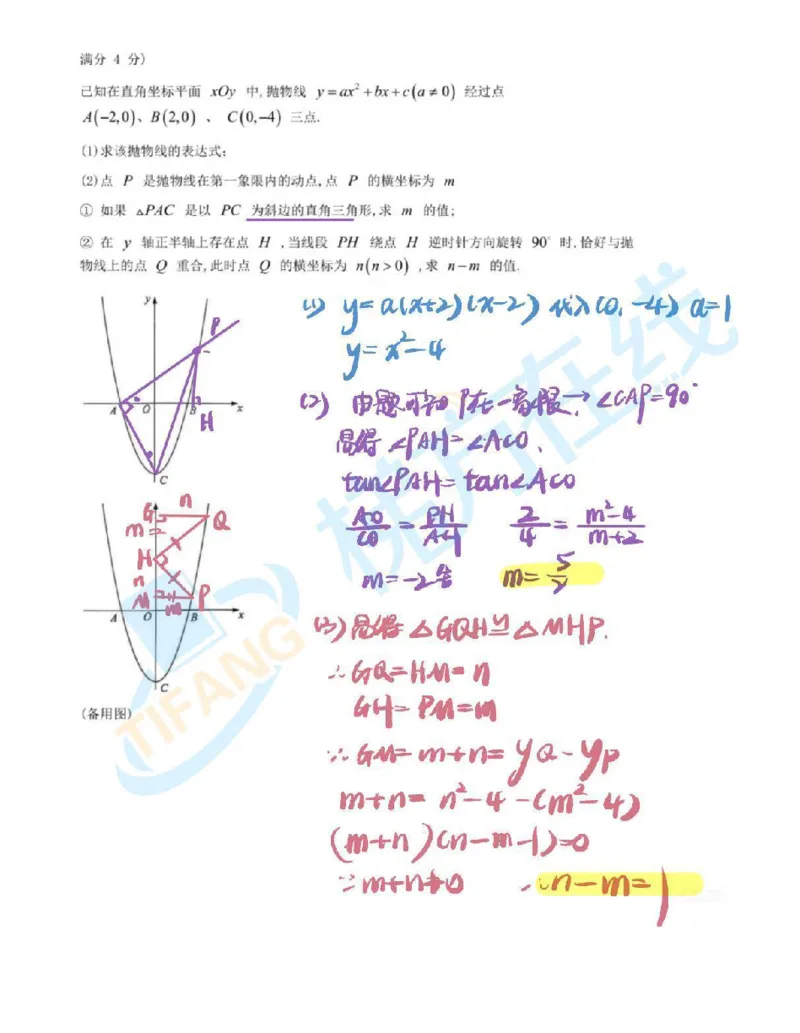 满分 4 分)
已知在直角坐标平面 xOy 中,抛物线 y=ax²+bx+c(a≠0) 经过点
A(-2,0)、B(2,0) 、 C(0,-4) 三点.
(1)求该抛物线的表达式;
(2)点 P 是抛物线在第一象限内的动点,点 P 的横坐标为 m
① 如果 △PAC 是以 PC 为斜边的直角三角形,求 m 的值;
② 在 y 轴正半轴上存在点 H ,当线段 PH 绕点 H 逆时针方向旋转 90° 时,恰好与抛
物线上的点 Q 重合,此时点 Q 的横坐标为 n(n>0) ,求 n-m 的值.
y
P
A O B x
H
C
(1) y=a(x+2)(x-2) 代入(0,-4) a=1
y=x²-4
(2) 由题可知 P在一象限→∠CAP=90°
易得 ∠PAH=∠ACO、
tan∠PAH=tan∠ACO
AO/CO=PH/AH 2/4=m²-4/m+2
m=-2舍 m=5/2
y
n
G Q
m
H
n
M m P
A O B x
C
(备用图)
(3)易得 △GQH≌△MHP.
∴GQ=HM=n
GH=PM=m
∵GM=m+n=yQ-yP
m+n=n²-4-(m²-4)
(m+n)(n-m-1)=0
∵m+n≠0 ∴n-m=1
桃方在线
TIFANG